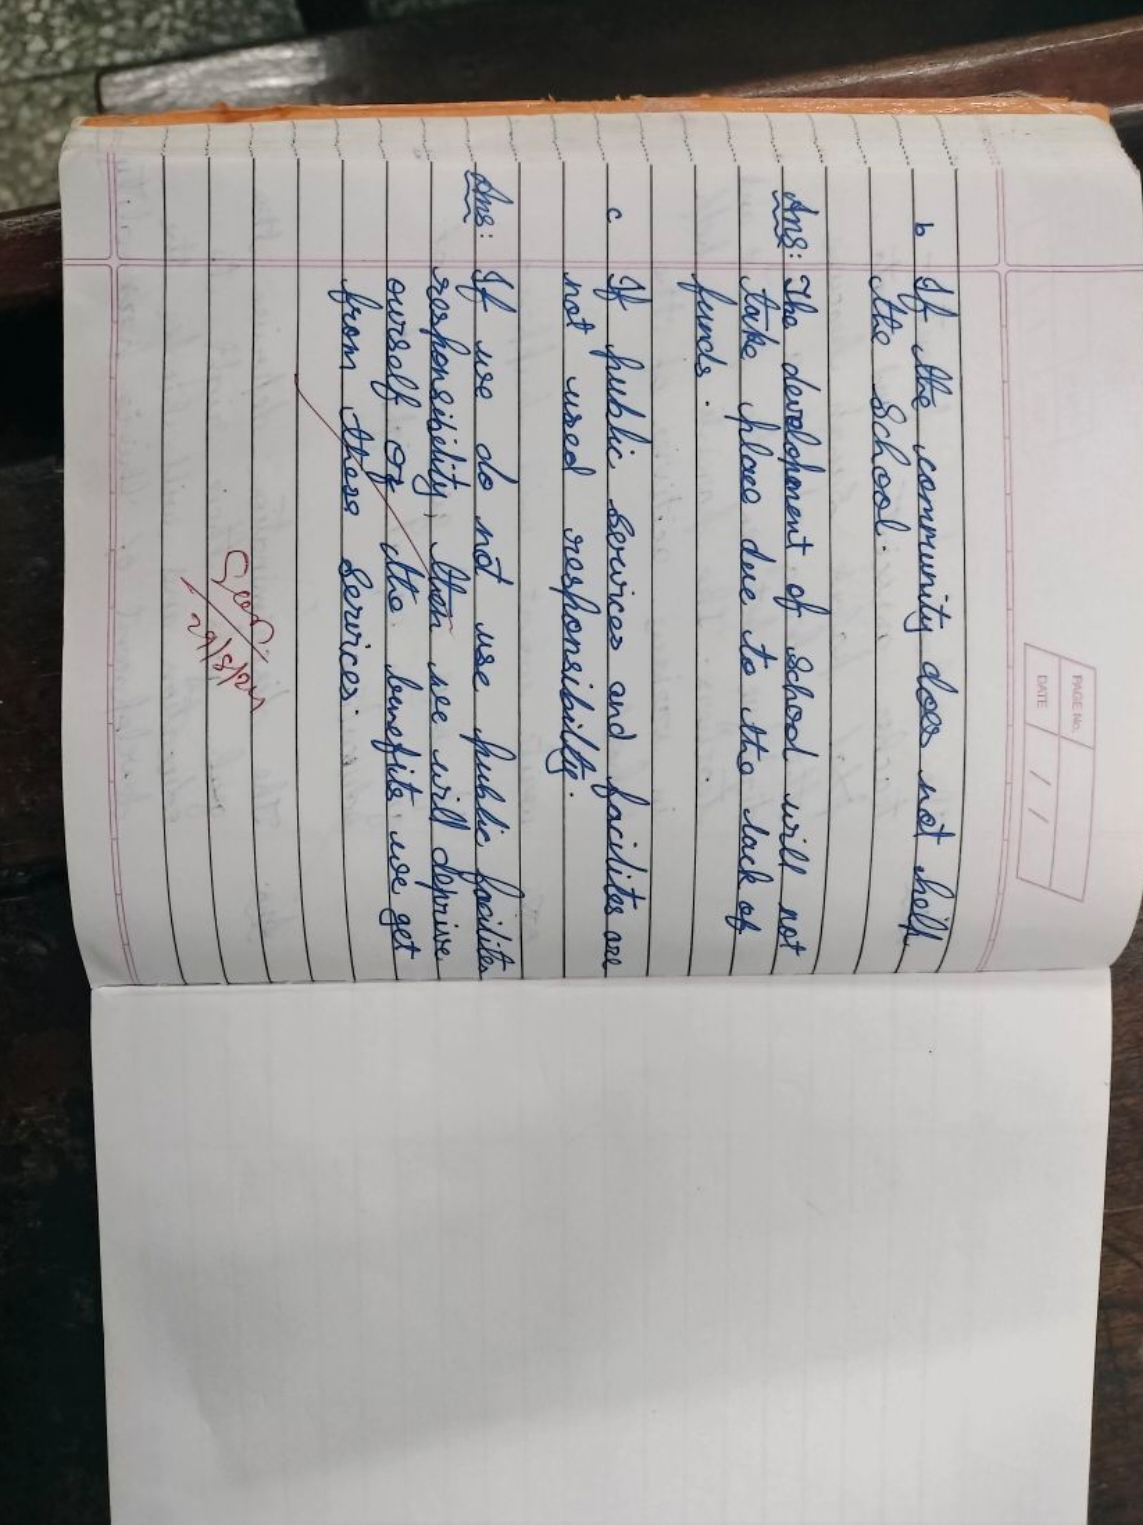 PAGE No.
DATE / /
b If the community does not help
the School.
Ans: The development of School will not
take place due to the lack of
funds.
c If public services and facilites are
not used responsibilty.
Ans: If we do not use public facilites
responsibility, then we will deprive
ourself of the benefits we get
from these services.